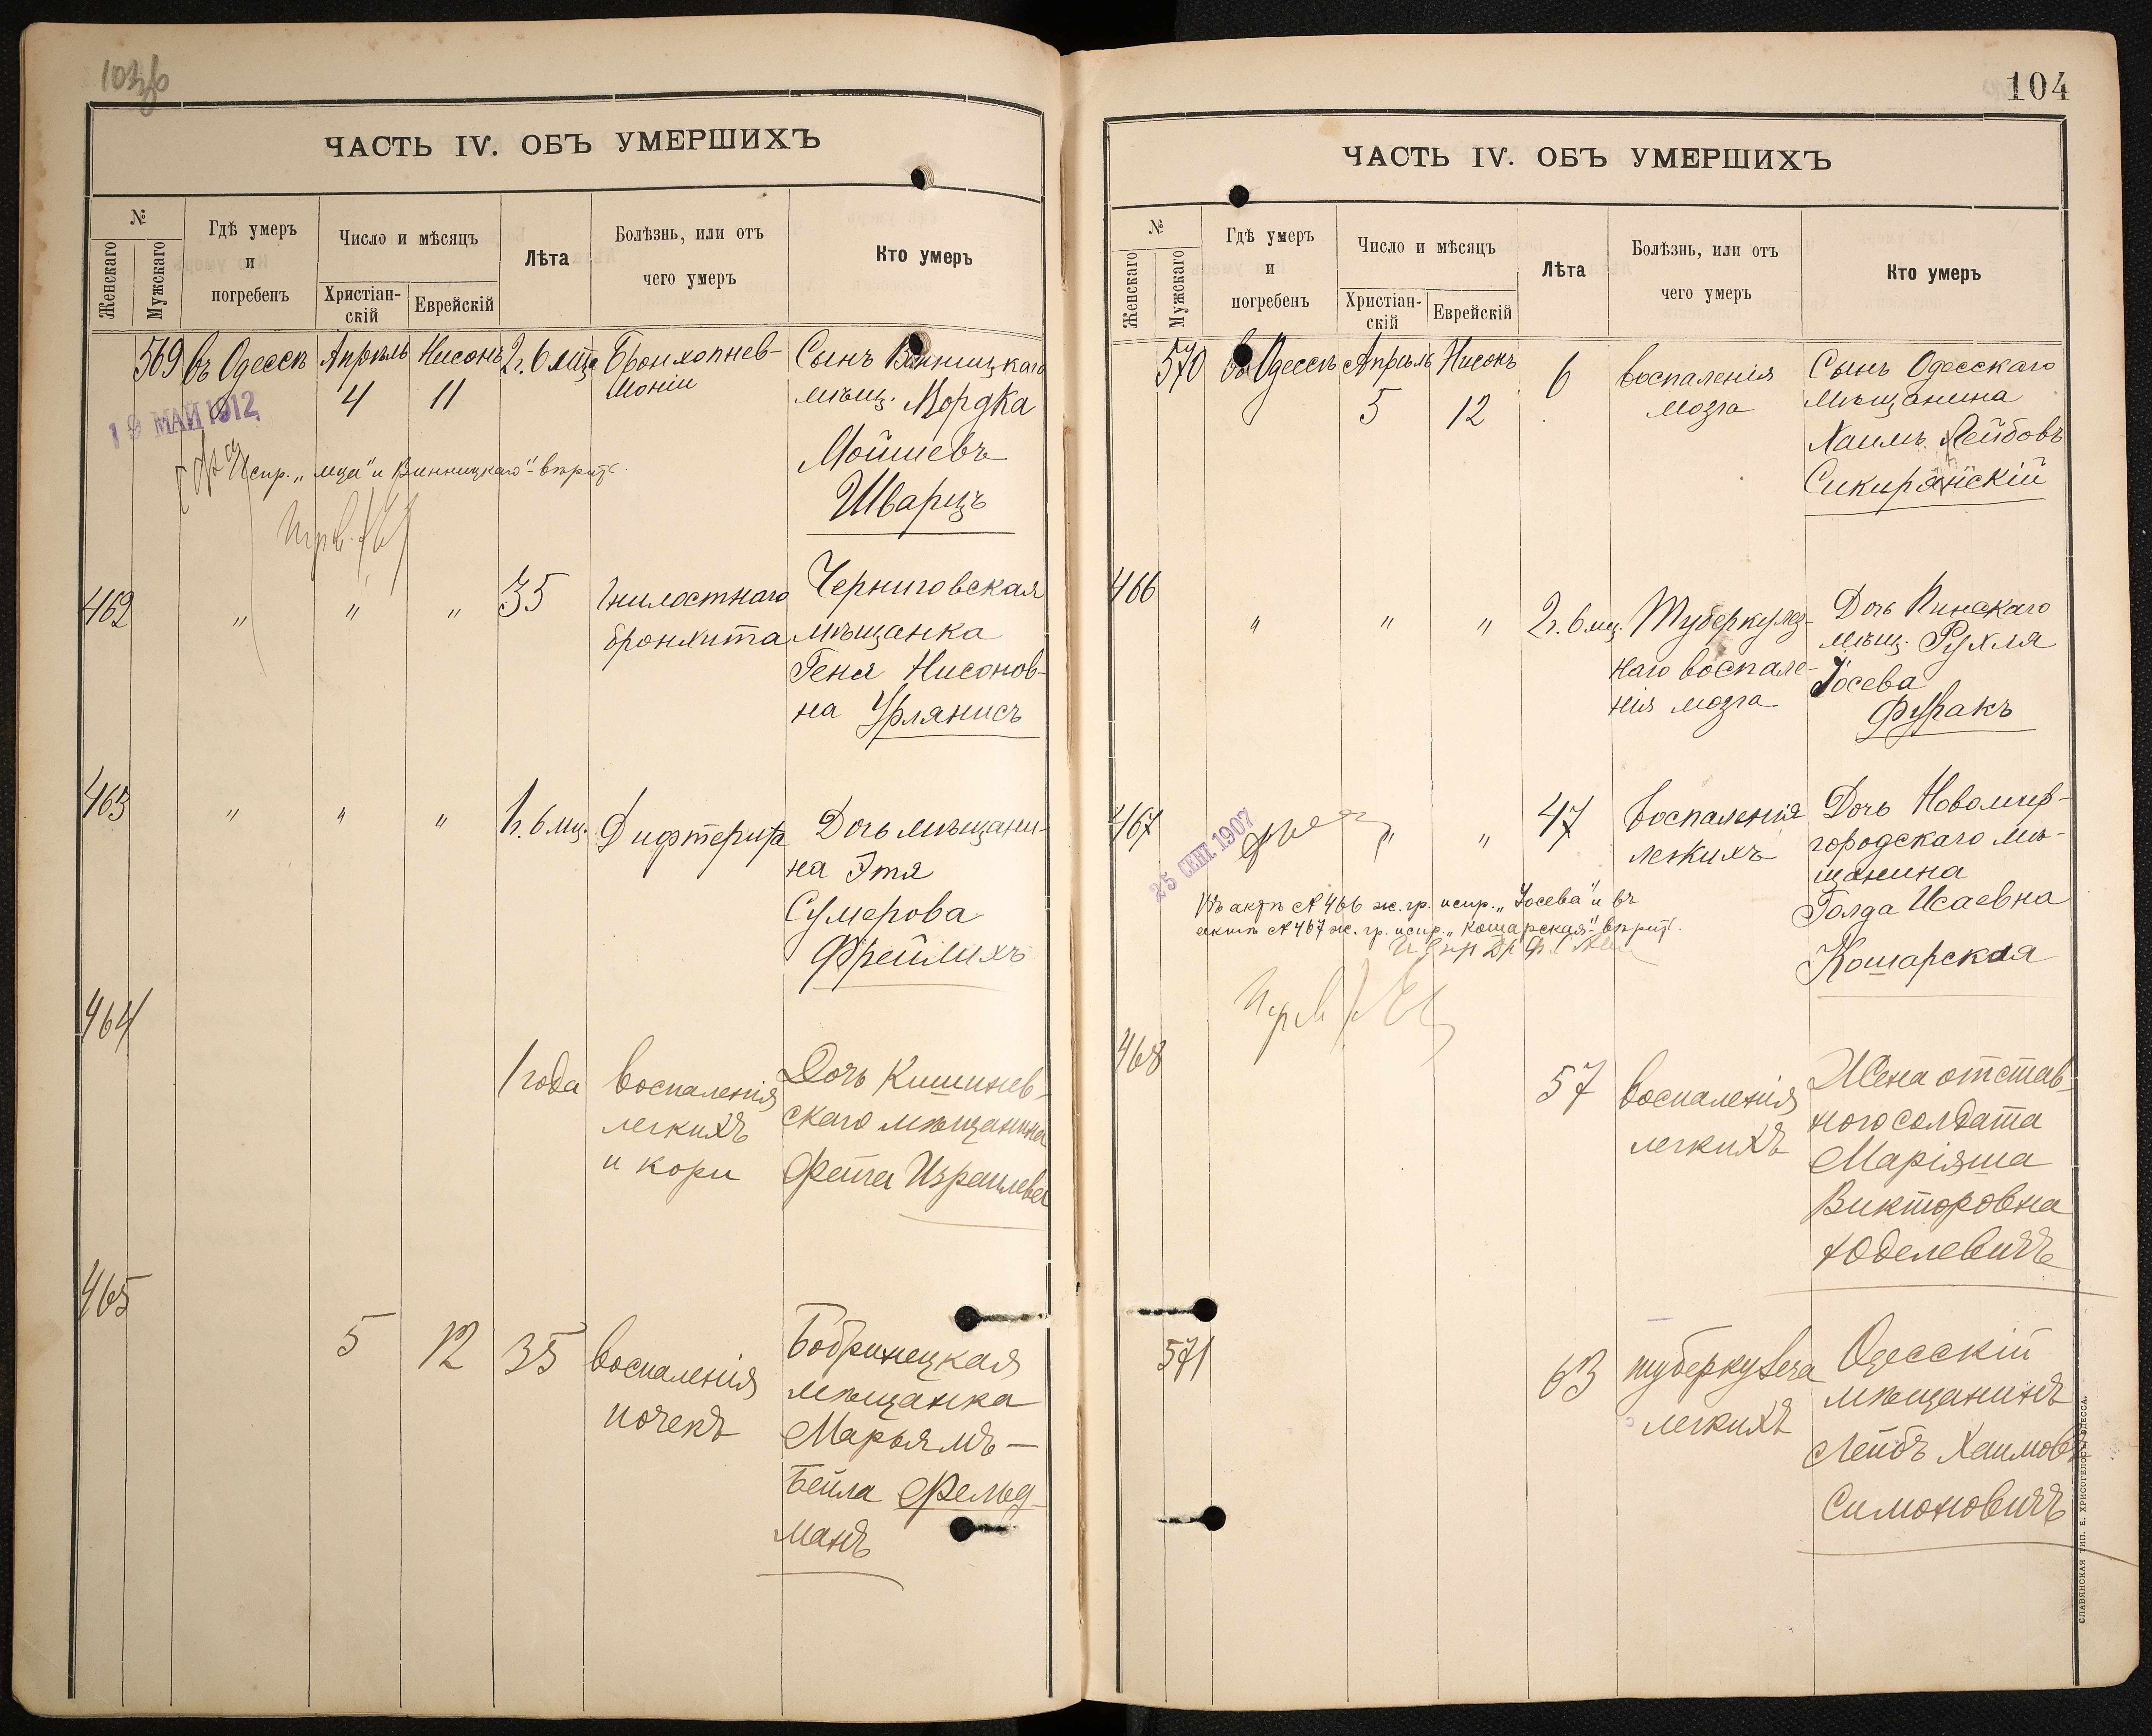 ЧАСТЬ IV. ОБЪ УМЕРШИХЪ
№
Женскаго
Мужскаго
Гдѣ умеръ
и
погребенъ
Число и мѣсяцъ
Христіан-
скій
Еврейскій
Лѣта
Болѣзнь, или отъ
чего умеръ
Кто умеръ
569 въ Одессѣ Апрѣль Нисонъ 2г. 6 мца Бронхопнев- Сынъ Винницкаго
4 11 моніи мѣщ. Мордка
19 МАЙ 1912
Мойшевъ
Испр. „мца" и Винницкаго"-вѣрить.
Шварцъ
462 " " " 35 Гнилостнаго Черниговская
бронхита мѣщанка
Геня Нисонов-
на Урлянисъ
463 " " " 1г. 6 мц. Дифтерита Дочь мѣщани-
на Этя
Сумерова
Фреймихъ
464
1 года воспаленія Дочь Кишинев-
легкихъ скаго мѣщанина
и кори Фейга Израилева
465
5 12 35 воспаленія Бобринецкая
почекъ мѣщанка
Марьямъ-
Бейла Фельд-
манъ
104
ЧАСТЬ IV. ОБЪ УМЕРШИХЪ
№
Женскаго
Мужскаго
Гдѣ умеръ
и
погребенъ
Число и мѣсяцъ
Христіан-
скій
Еврейскій
Лѣта
Болѣзнь, или отъ
чего умеръ
Кто умеръ
570 въ Одессѣ Апрѣль Нисонъ 6 воспаленія Сынъ Одесскаго
5 12 мозга мѣщанина
Хаимъ Лейбовъ
Сикирянскій
466 " " " 2г. 6 мц. Туберкулез- Дочь Пинскаго
наго воспале- мѣщ. Рухля
нія мозга Іосева
Фуракъ
467 " " 47 Воспаленія Дочь Новомир-
легкихъ городскаго мѣ-
щанина
25 СЕНТ. 1907
Въ актѣ № 466 ж. гр. испр. „Іосева" и въ Голда Исаевна
актѣ № 467 ж. гр. испр. „Кошарская"-вѣрить.
Кошарская
468
57 воспаленія Жена отстав-
легкихъ ного солдата
Маріяша
Викторовна
Юделевичъ
571 63 туберкулеза Одесскій
легкихъ мѣщанинъ
Лейбъ Хаимов
Симоновичъ
СЛАВЯНСКАЯ ТИП. Е. ХРИСОГЕЛОСЪ, ОДЕССА.